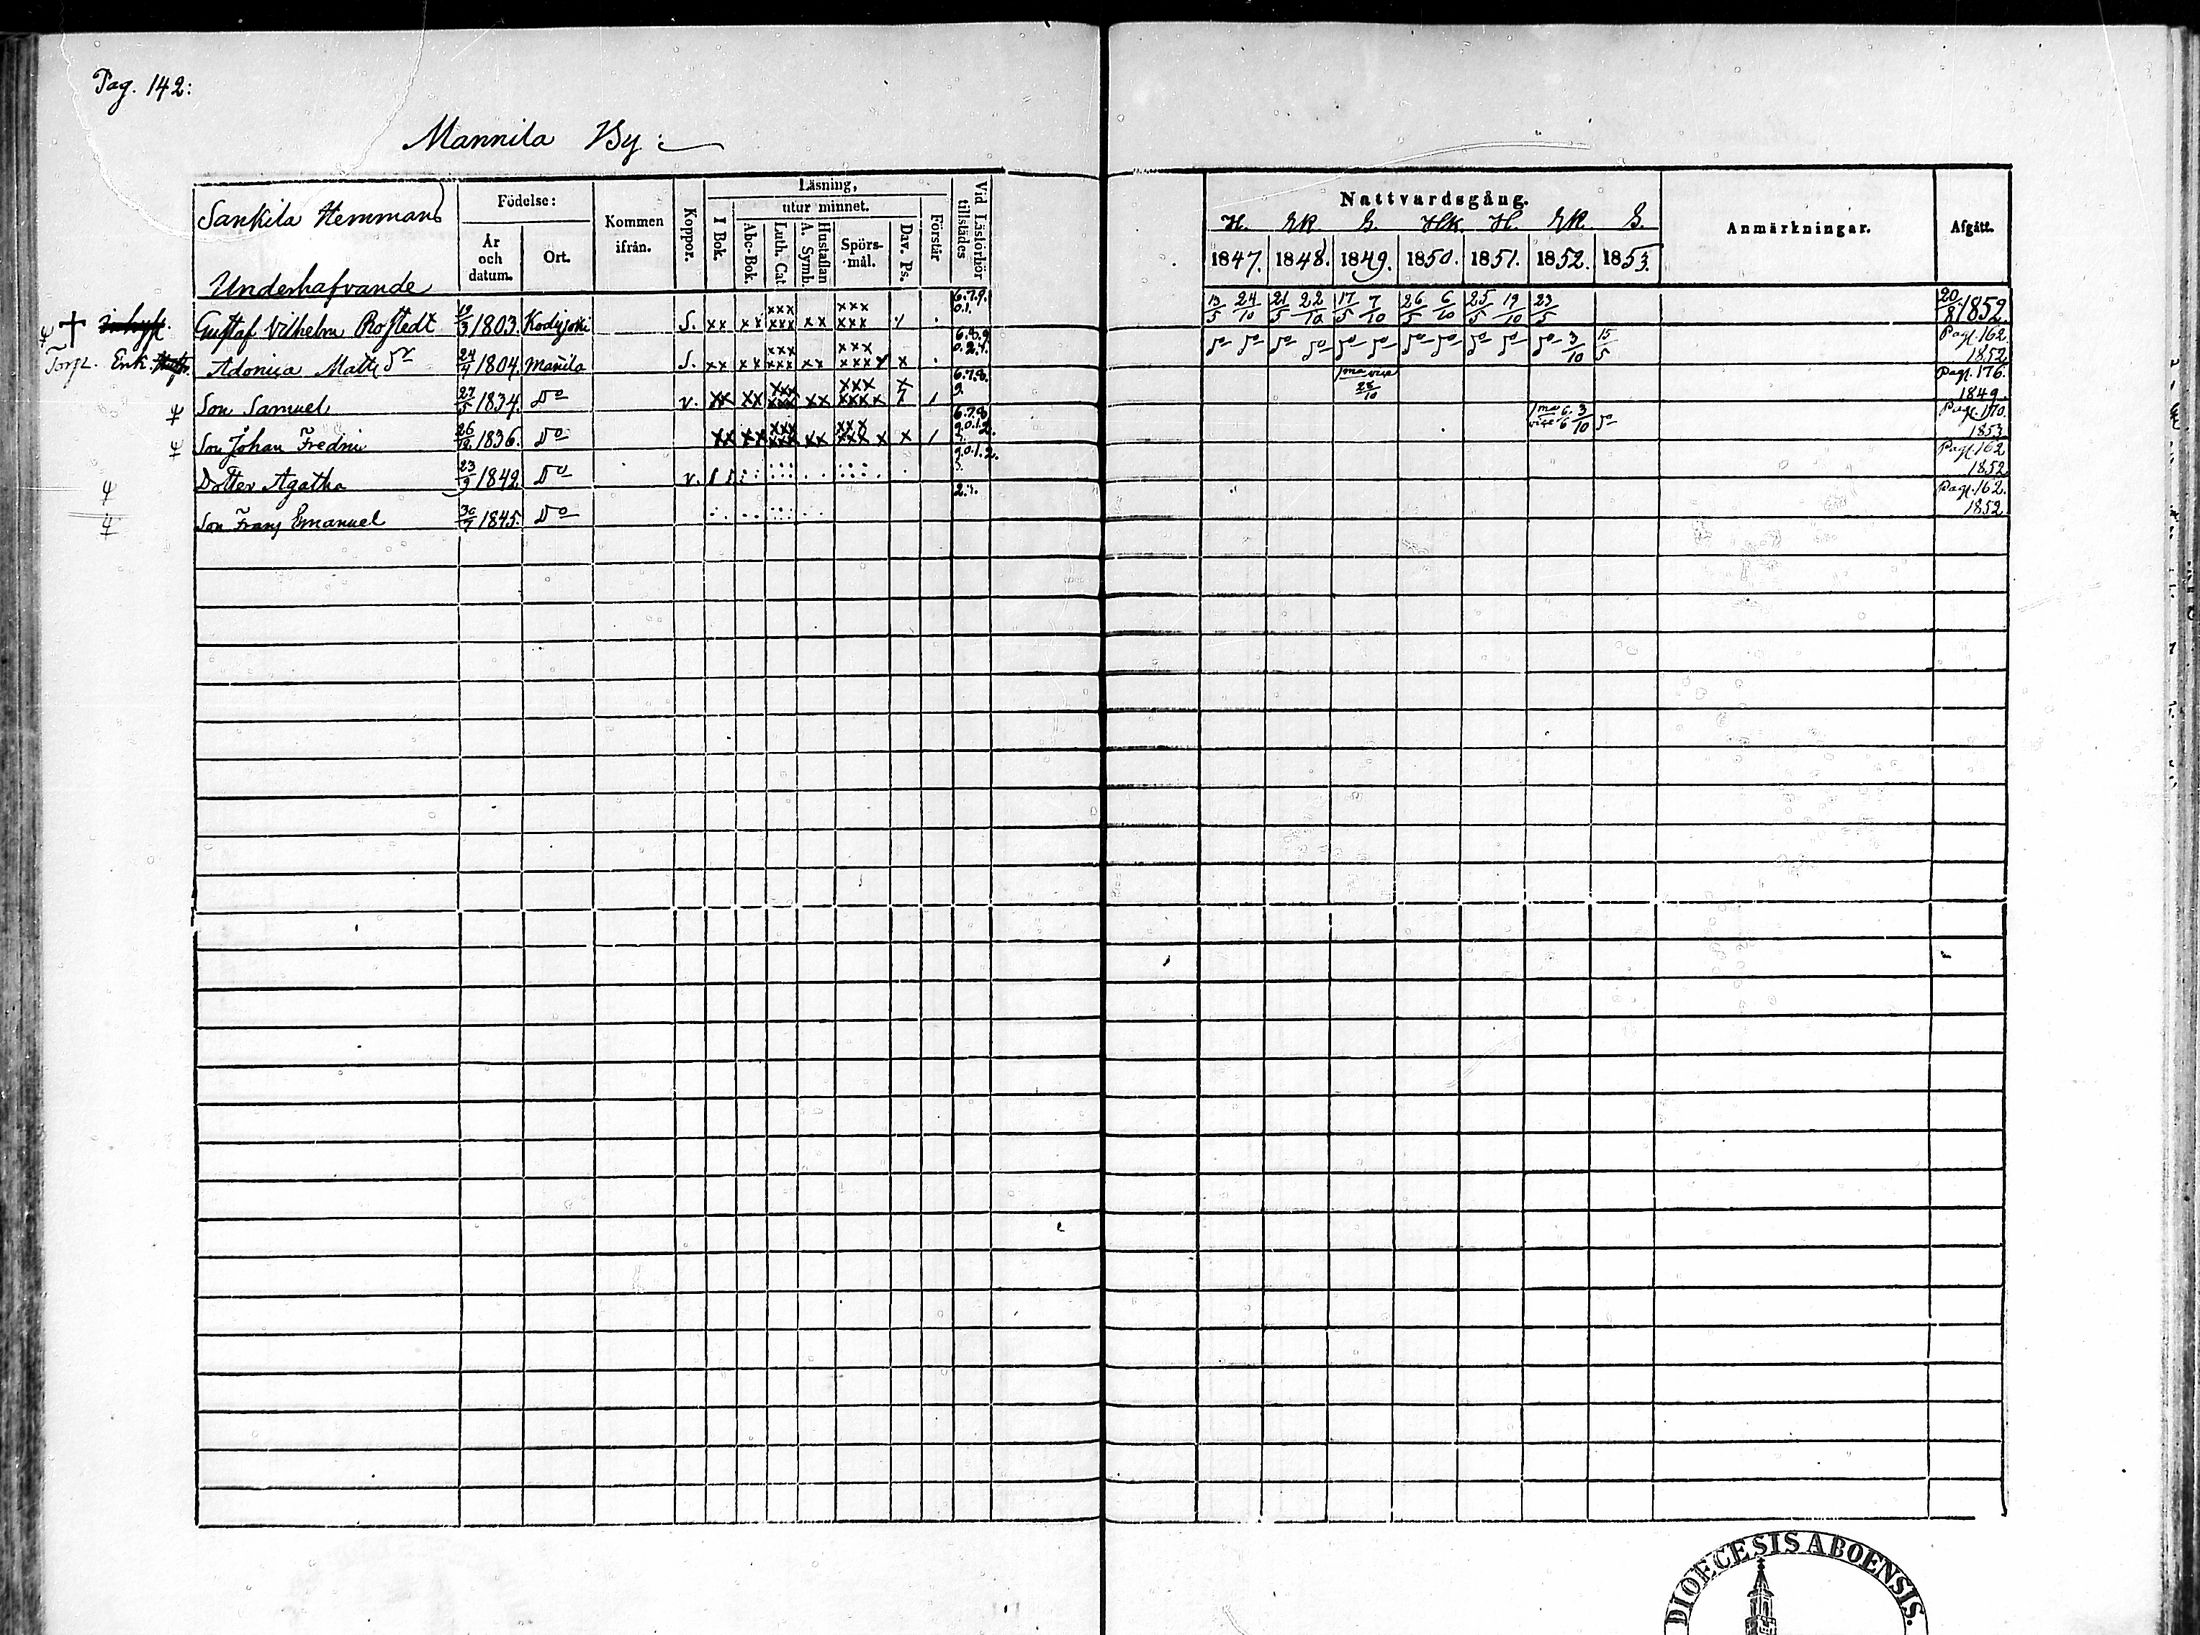 Pag. 142:
Mannila By:
Sankila Hemmans
Underhafvande
Födelse:
År och datum.
Ort.
Kommen ifrån.
Koppor.
Läsning,
utur minnet.
I Bok.
Abc-Bok.
Luth. Cat
Hustaflan A. Symb.
Spörs-mål.
Dav. Ps.
Förstår
Vid Läsförhör tillstädes
Nattvardsgång.
H. S. H. S.
1847. 1848. 1849. 1850. 1851. 1852. 1853.
Anmärkningar.
Afgått.
Gustaf Vilhelm Rostedt 19/3 1803. Kodisjoki S. xx xx xxx xxx xx xxx xxx 6.7.9. 0.1. 13/5 24/10 21/5 22/10 17/5 7/10 26/5 6/10 25/5 19/10 23/5 20/8 1852.
Torp. Enk. Adonica Matts Dr 24/4 1804. Mañila S. xx xx xxx xxx xx xxx xxxx x 6.8.9. 0.2.4. Do Do Do Do Do Do Do Do Do Do Do 3/10 15/5 Pag. 162. 1852
Son Samuel 27/5 1834. Do v. xx xx xxx xxx xx xxx xxxx x 6.7.8. 9. 1ma vice 28/10 Pag. 176. 1849.
Son Johan Fredric 26/12 1836. Do xx xx xxx xxx xx xxx xxx x x 6.7.8. 9.0.1.2. 1ma vice 6/6 3/10 Do Pag. 170. 1853
Dotter Agatha 23/9 1842. Do v. 9.0.1.2. Pag. 162 1852
Son Franz Emanuel 30/7 1845. Do Pag. 162. 1852
DIOECESIS ABOENSIS.